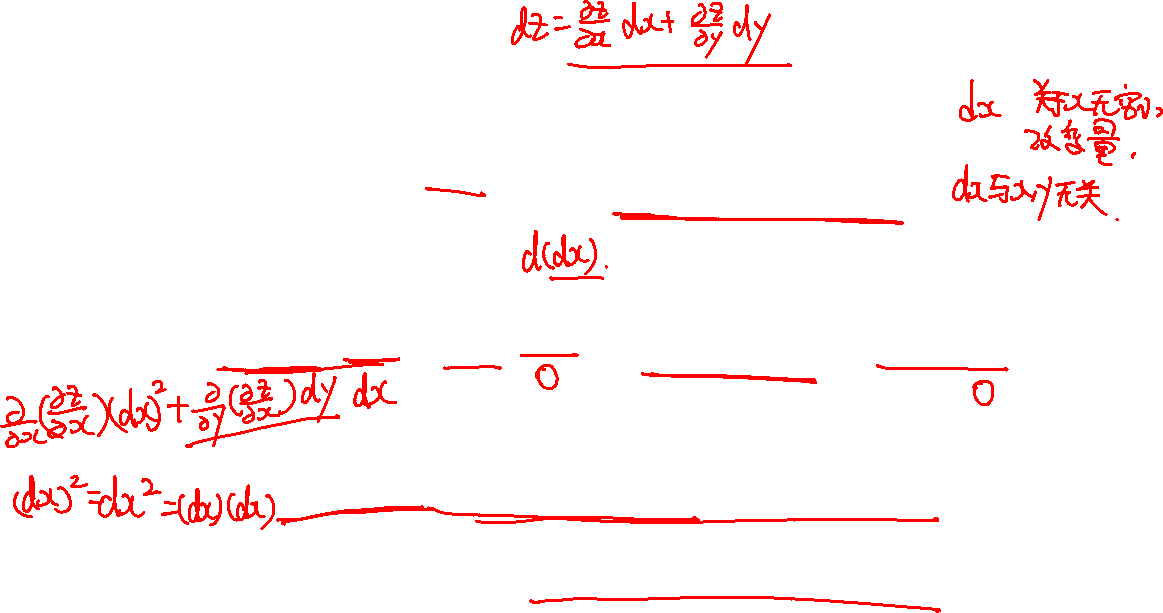 dz = ∂z/∂x dx + ∂z/∂y dy
dx 关于x无穷小
改变量.
dx与x,y无关.
d(dx).
0
0
∂/∂x(∂z/∂x)(dx)² + ∂/∂y(∂z/∂x)dy dx
(dx)² = dx² = (dx)(dx)